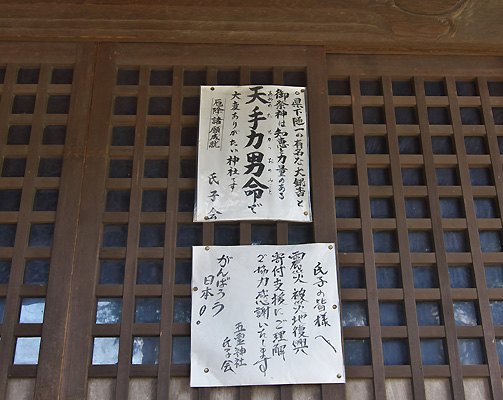 ◦県下随一の有名な大銀杏と
御祭神は知恵と力量のある
天手力男命で
あめのたぢからおのみこと
大変ありがたい神社です
厄除諸願成就
氏子会
氏子の皆様へ
震災被災地復興
寄付支援にご理解
ご協力感謝いたします
がんばろう
日本◦
五霊神社
氏子会